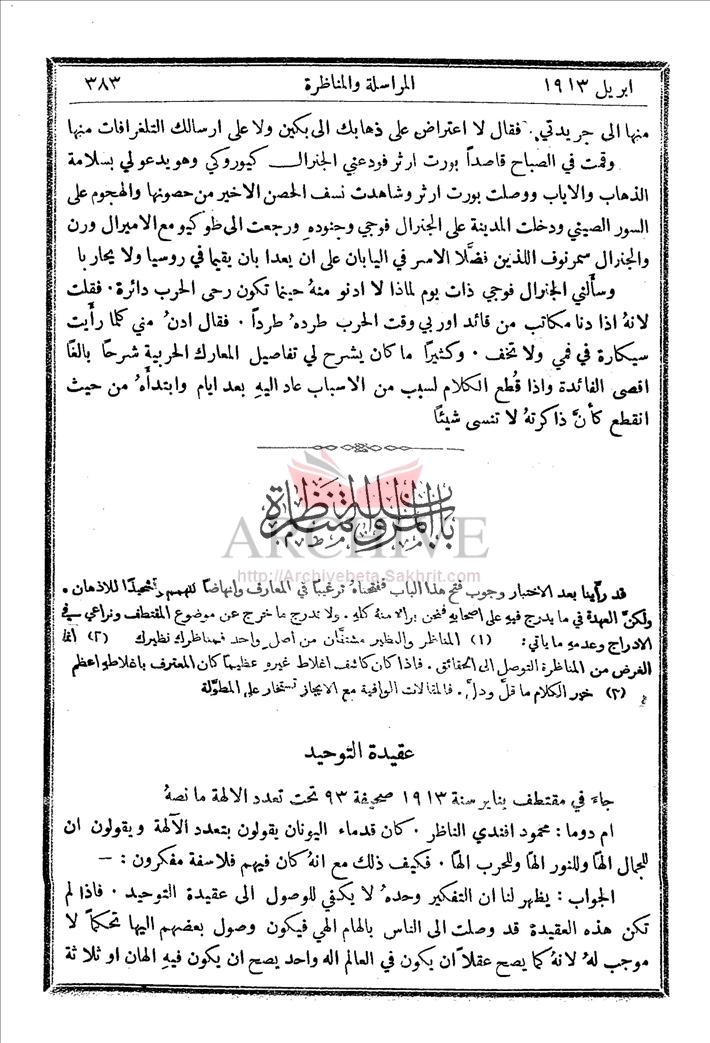 ابريل ١٩١٣ المراسلة والمناظرة ٣٨٣
منها الى جريدتي. فقال لا اعتراض على ذهابك الى بكين ولا على ارسالك التلغرافات منها
وقمت في الصباح قاصداً بورت ارثر فودعني الجنرال كيوروكي وهو يدعو لي بسلامة
الذهاب والاياب ووصلت بورت ارثر وشاهدت نسف الحصن الاخير من حصونها والهجوم على
السور الصيني ودخلت المدينة على الجنرال فوجي وجنوده ورجعت الى طوكيو مع الاميرال ورن
والجنرال سمرنوف اللذين فضَّلا الاسر في اليابان على ان يعدا بان يقيما في روسيا ولا يحاربا
وسأَلني الجنرال فوجي ذات يوم لماذا لا ادنو منهُ حينما تكون رحى الحرب دائرة. فقلت
لانهُ اذا دنا مكاتب من قائد اوربي وقت الحرب طردهُ طرداً. فقال ادنُ مني كلما رأَيت
سيكارة في فمي ولا تخف. وكثيراً ما كان يشرح لي تفاصيل المعارك الحربية شرحاً بالغاً
اقصى الفائدة واذا قُطع الكلام لسبب من الاسباب عاد اليهِ بعد ايام وابتدأَهُ من حيث
انقطع كأَنَّ ذاكرتهُ لا تنسى شيئاً
باب المراسلة والمناظرة
ARCHIVE
http://Archivebeta.Sakhrit.com
قد رأَينا بعد الاختبار وجوب فتح هذا الباب ففتحناهُ ترغيباً في المعارف وانهاضاً للهمم وتشحيذاً للاذهان.
ولكنَّ العهدة في ما يدرج فيهِ على اصحابهِ فنحن برالا منهُ كلهِ. ولا ندرج ما خرج عن موضوع المقتطف ونراعي في
الادراج وعدمهِ ما ياتي: (١) المناظر والنظير مشتقَّان من اصل واحد فمناظرك نظيرك (٢) انما
الغرض من المناظرة التوصل الى الحقائق. فاذا كان كاشف اغلاط غيرهِ عظيماً كان المعترف باغلاطهِ اعظم
(٣) خير الكلام ما قلَّ ودلَّ. فالمقالات الوافية مع الايجاز تستخار على المطوَّلة
عقيدة التوحيد
جاءَ في مقتطف يناير سنة ١٩١٣ صحيفة ٩٣ تحت تعدد الالهة ما نصهُ
ام دوما: محمود افندي الناظر. كان قدماء اليونان يقولون بتعدد الآلهة ويقولون ان
للجمال الهاً وللنور الهاً وللحرب الهاً. فكيف ذلك مع انهُ كان فيهم فلاسفة مفكرون: —
الجواب: يظهر لنا ان التفكير وحدهُ لا يكفي للوصول الى عقيدة التوحيد. فاذا لم
تكن هذه العقيدة قد وصلت الى الناس بالهام الهي فيكون وصول بعضهم اليها تحكماً لا
موجب لهُ لانهُ كما يصح عقلاً ان يكون في العالم اله واحد يصح ان يكون فيهِ الهان او ثلاثة